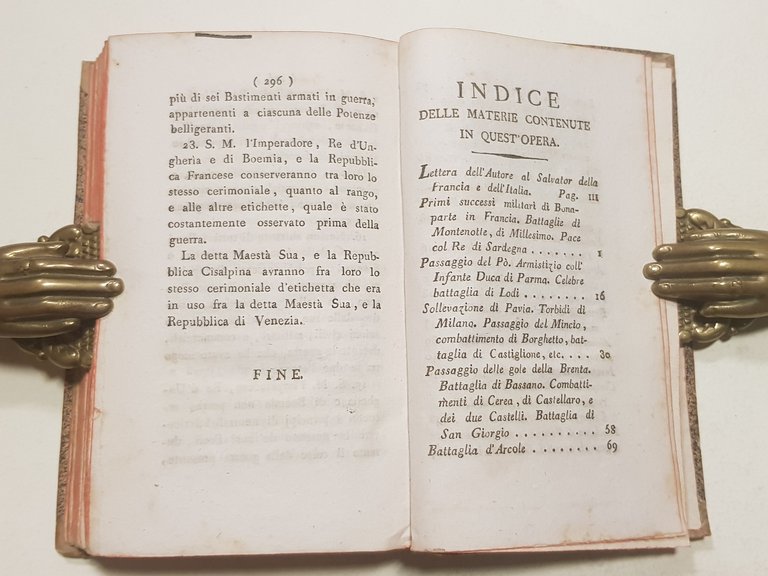 ( 296 )
più di sei Bastimenti armati in guerra,
appartenenti a ciascuna delle Potenze
belligeranti.
23. S. M. l'Imperadore, Re d'Un-
gheria e di Boemia, e la Repubbli-
ca Francese conserveranno tra loro lo
stesso cerimoniale, quanto al rango,
e alle altre etichette, quale è stato
costantemente osservato prima della
guerra.
La detta Maestà Sua, e la Repub-
blica Cisalpina avranno fra loro lo
stesso cerimoniale d'etichetta che era
in uso fra la detta Maestà Sua, e la
Repubblica di Venezia.
FINE.
INDICE
DELLE MATERIE CONTENUTE
IN QUEST'OPERA.
Lettera dell'Autore al Salvator della
Francia e dell'Italia. Pag. III
Primi successi militari di Bona-
parte in Francia. Battaglie di
Montenotte, di Millesimo. Pace
col Re di Sardegna ....... 1
Passaggio del Pò. Armistizio coll'
Infante Duca di Parma. Celebre
battaglia di Lodi ........ 16
Sollevazione di Pavia. Torbidi di
Milano. Passaggio del Mincio,
combattimento di Borghetto, bat-
taglia di Castiglione, etc. ... 30
Passaggio delle gole della Brenta.
Battaglia di Bassano. Combatti-
menti di Cerea, di Castellaro, e
dei due Castelli. Battaglia di
San Giorgio .......... 58
Battaglia d'Arcole ........ 69